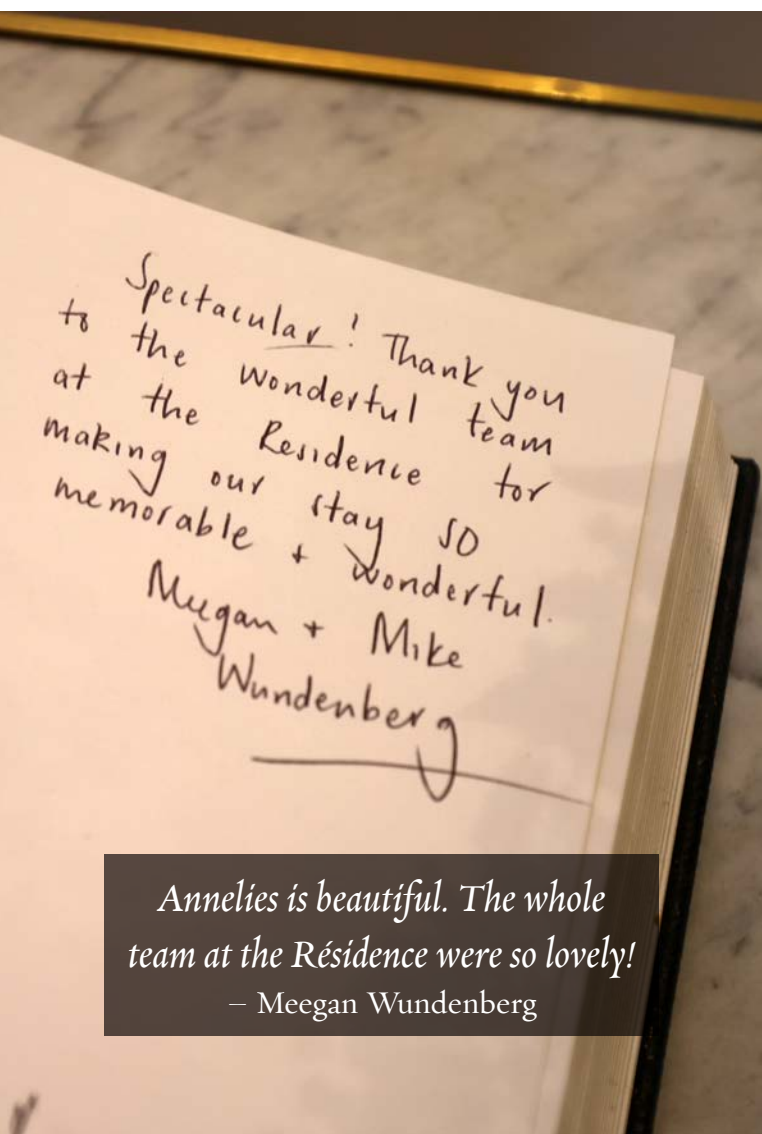 Spectacular! Thank you
to the wonderful team
at the Residence for
making our stay so
memorable + wonderful.
Meegan + Mike
Wundenberg
Annelies is beautiful. The whole
team at the Résidence were so lovely!
– Meegan Wundenberg